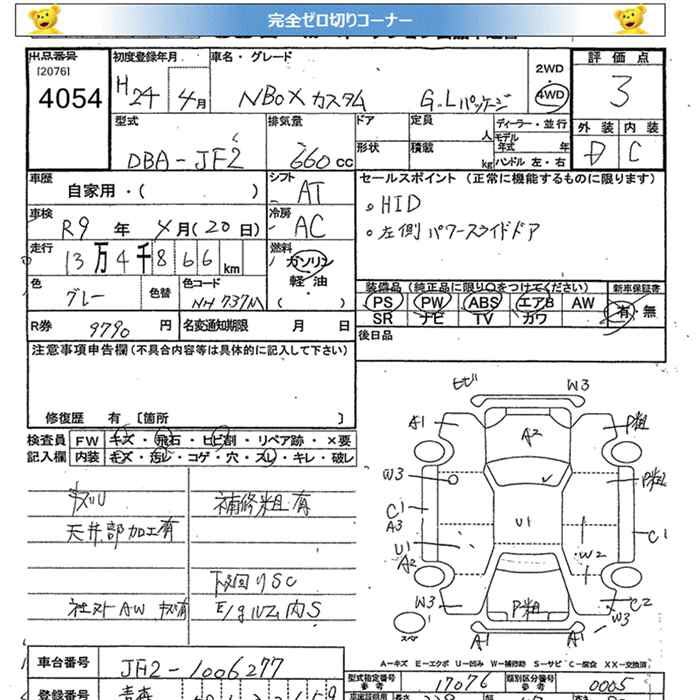 完全ゼロ切りコーナー
出品番号
[2076]
4054
初度登録年月
H24 4月
車名・グレード
NBOXカスタム G.Lパッケージ
2WD
4WD
評価点
3
外装 内装
D C
型式
DBA-JF2
排気量
660cc
ドア
形状
定員 人
積載 kg
ディーラー・並行
モデル年式 年
ハンドル 左・右
車歴
自家用・( )
シフト
AT
車検
R9年 4月(20日)
冷房
AC
走行
13万4千866km
燃料
ガソリン
軽・油
( )
色
グレー
色替
色コード
NH737M
セールスポイント (正常に機能するものに限ります)
。HID
。左側パワースライドドア
装備品 (純正品に限り○をつけてください) 新車保証書
PS PW ABS エアB AW 有・無
SR ナビ TV カワ
R券 9790円
名変通知期限 月 日
後日品
注意事項申告欄(不具合内容等は具体的に記入して下さい)
修復歴 有 [箇所 ]
検査員 FW キズ・飛石・ヒビ割・リペア跡・×要
記入欄 内装 キズ・汚レ・コゲ・穴・スレ・キレ・破レ
キズU
天井部加工有
補修粗有
下回りSC
社外AW キズ有
E/gルム内S
ヒビ W3
A1 A2 P粗
W3 P粗
C1
A3 U1 C1
U1 W2
A2
W3 P粗 C2
W3
スペア A1 A1
A-キズ E-エクボ U-凹み W-補修跡 S-サビ C-腐食 XX-交換済
車台番号
JF2-1006277
型式指定番号
参考
17076
類別区分番号
参考
0005
登録番号
青森